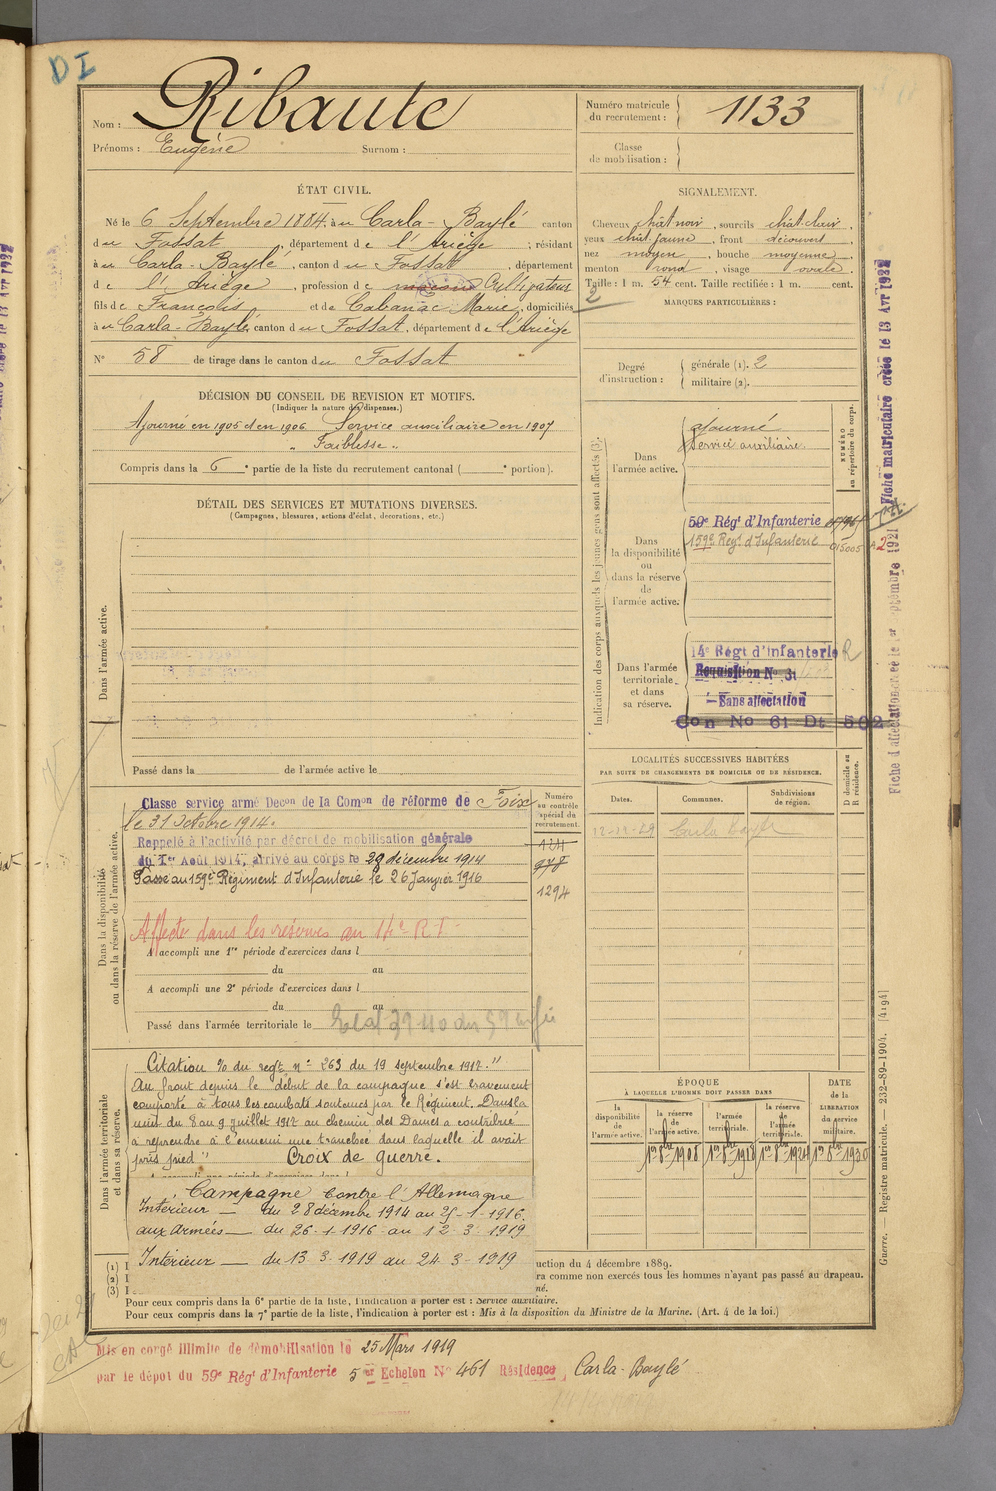 DI
Nom : Ribaute
Prénoms : Eugène Surnom :
Numéro matricule du recrutement : 1133
Classe de mobilisation :
ÉTAT CIVIL.
Né le 6 Septembre 1884, à u Carla-Baylé canton
d u Fossat, département d e l'Ariège ; résidant
à u Carla-Baylé, canton d u Fossat, département
d e l'Ariège, profession d e Cultivateur
fils d e François et d e Cabanac Marie, domiciliés
à u Carla-Baylé, canton d u Fossat, département d e l'Ariège
N° 58 de tirage dans le canton d u Fossat
SIGNALEMENT.
Cheveux chât noir, sourcils chât. clair,
yeux chât. jaune, front découvert,
nez moyen, bouche moyenne,
menton rond, visage ovale.
Taille : 1 m. 54 cent. Taille rectifiée : 1 m. cent.
2
MARQUES PARTICULIÈRES :
Degré d'instruction : générale (1). 2
militaire (2).
DÉCISION DU CONSEIL DE REVISION ET MOTIFS.
(Indiquer la nature des dispenses.)
Ajourné en 1905 et en 1906 Service auxiliaire en 1907
„ Faiblesse „
Compris dans la 6e partie de la liste du recrutement cantonal ( e portion).
DÉTAIL DES SERVICES ET MUTATIONS DIVERSES.
(Campagnes, blessures, actions d'éclat, décorations, etc.)
Dans l'armée active.
Passé dans la de l'armée active le
Indication des corps auxquels les jeunes gens sont affectés (3).
NUMÉRO au répertoire du corps.
Dans l'armée active.
ajourné
Service auxiliaire
Dans la disponibilité ou dans la réserve de l'armée active.
59e Régt d'Infanterie
159e Régt d'Infanterie 015005 A2
Dans l'armée territoriale et dans sa réserve.
14e Régt d'Infanterie R
Requisition No 31
— Sans affectation
Con No 61 Dt 502
Fiche matriculaire créée le 13 Avr 1932
LOCALITÉS SUCCESSIVES HABITÉES
PAR SUITE DE CHANGEMENTS DE DOMICILE OU DE RÉSIDENCE.
Dates. Communes. Subdivisions de région.
D domicile ou R résidence.
Carla Bayle
Dans la disponibilité ou dans la réserve de l'armée active.
Numéro au contrôle spécial du recrutement.
Classé service armé Decon de la Comon de réforme de Foix
le 31 Octobre 1914.
Rappelé à l'activité par décret de mobilisation générale
du 1er Août 1914, arrivé au corps le 29 décembre 1914
Passé au 159e Régiment d'Infanterie le 26 Janvier 1916
978
1294
Affecté dans les réserves au 14e R I
A accompli une 1re période d'exercices dans l
du au
A accompli une 2e période d'exercices dans l
du au
Passé dans l'armée territoriale le
Dans l'armée territoriale et dans sa réserve.
Citation % du regt n° 263 du 19 septembre 1917. "
Au front depuis le début de la campagne s'est bravement
comporté à tous les combats soutenus par le Régiment. Dans la
nuit du 8 au 9 juillet 1917 au chemin des Dames a contribué
à reprendre à l'ennemi une tranchée dans laquelle il avait
pris pied " Croix de guerre.
Campagne contre l'Allemagne
Intérieur — du 28 décembre 1914 au 25-1-1916.
aux Armées — du 26-1-1916 au 12-3-1919
Intérieur — du 13-3-1919 au 24-3-1919
ÉPOQUE
À LAQUELLE L'HOMME DOIT PASSER DANS
DATE de la LIBÉRATION du service militaire.
la disponibilité de l'armée active. la réserve de l'armée active. l'armée territoriale. la réserve de l'armée territoriale.
1er 8bre 1908 1er 8bre 1918 1er 8bre 1924 1er 8bre 1930
(1) I uction du 4 décembre 1889.
(2) I ra comme non exercés tous les hommes n'ayant pas passé au drapeau.
(3) I né.
Pour ceux compris dans la 6e partie de la liste, l'indication à porter est : Service auxiliaire.
Pour ceux compris dans la 7e partie de la liste, l'indication à porter est : Mis à la disposition du Ministre de la Marine. (Art. 4 de la loi.)
Guerre. — Registre matricule. — 232-89-1904. [4194]
Mis en congé illimité de démobilisation le 25 Mars 1919
par le dépôt du 59e Régt d'Infanterie 5e Echelon No 461 Résidence Carla-Baylé